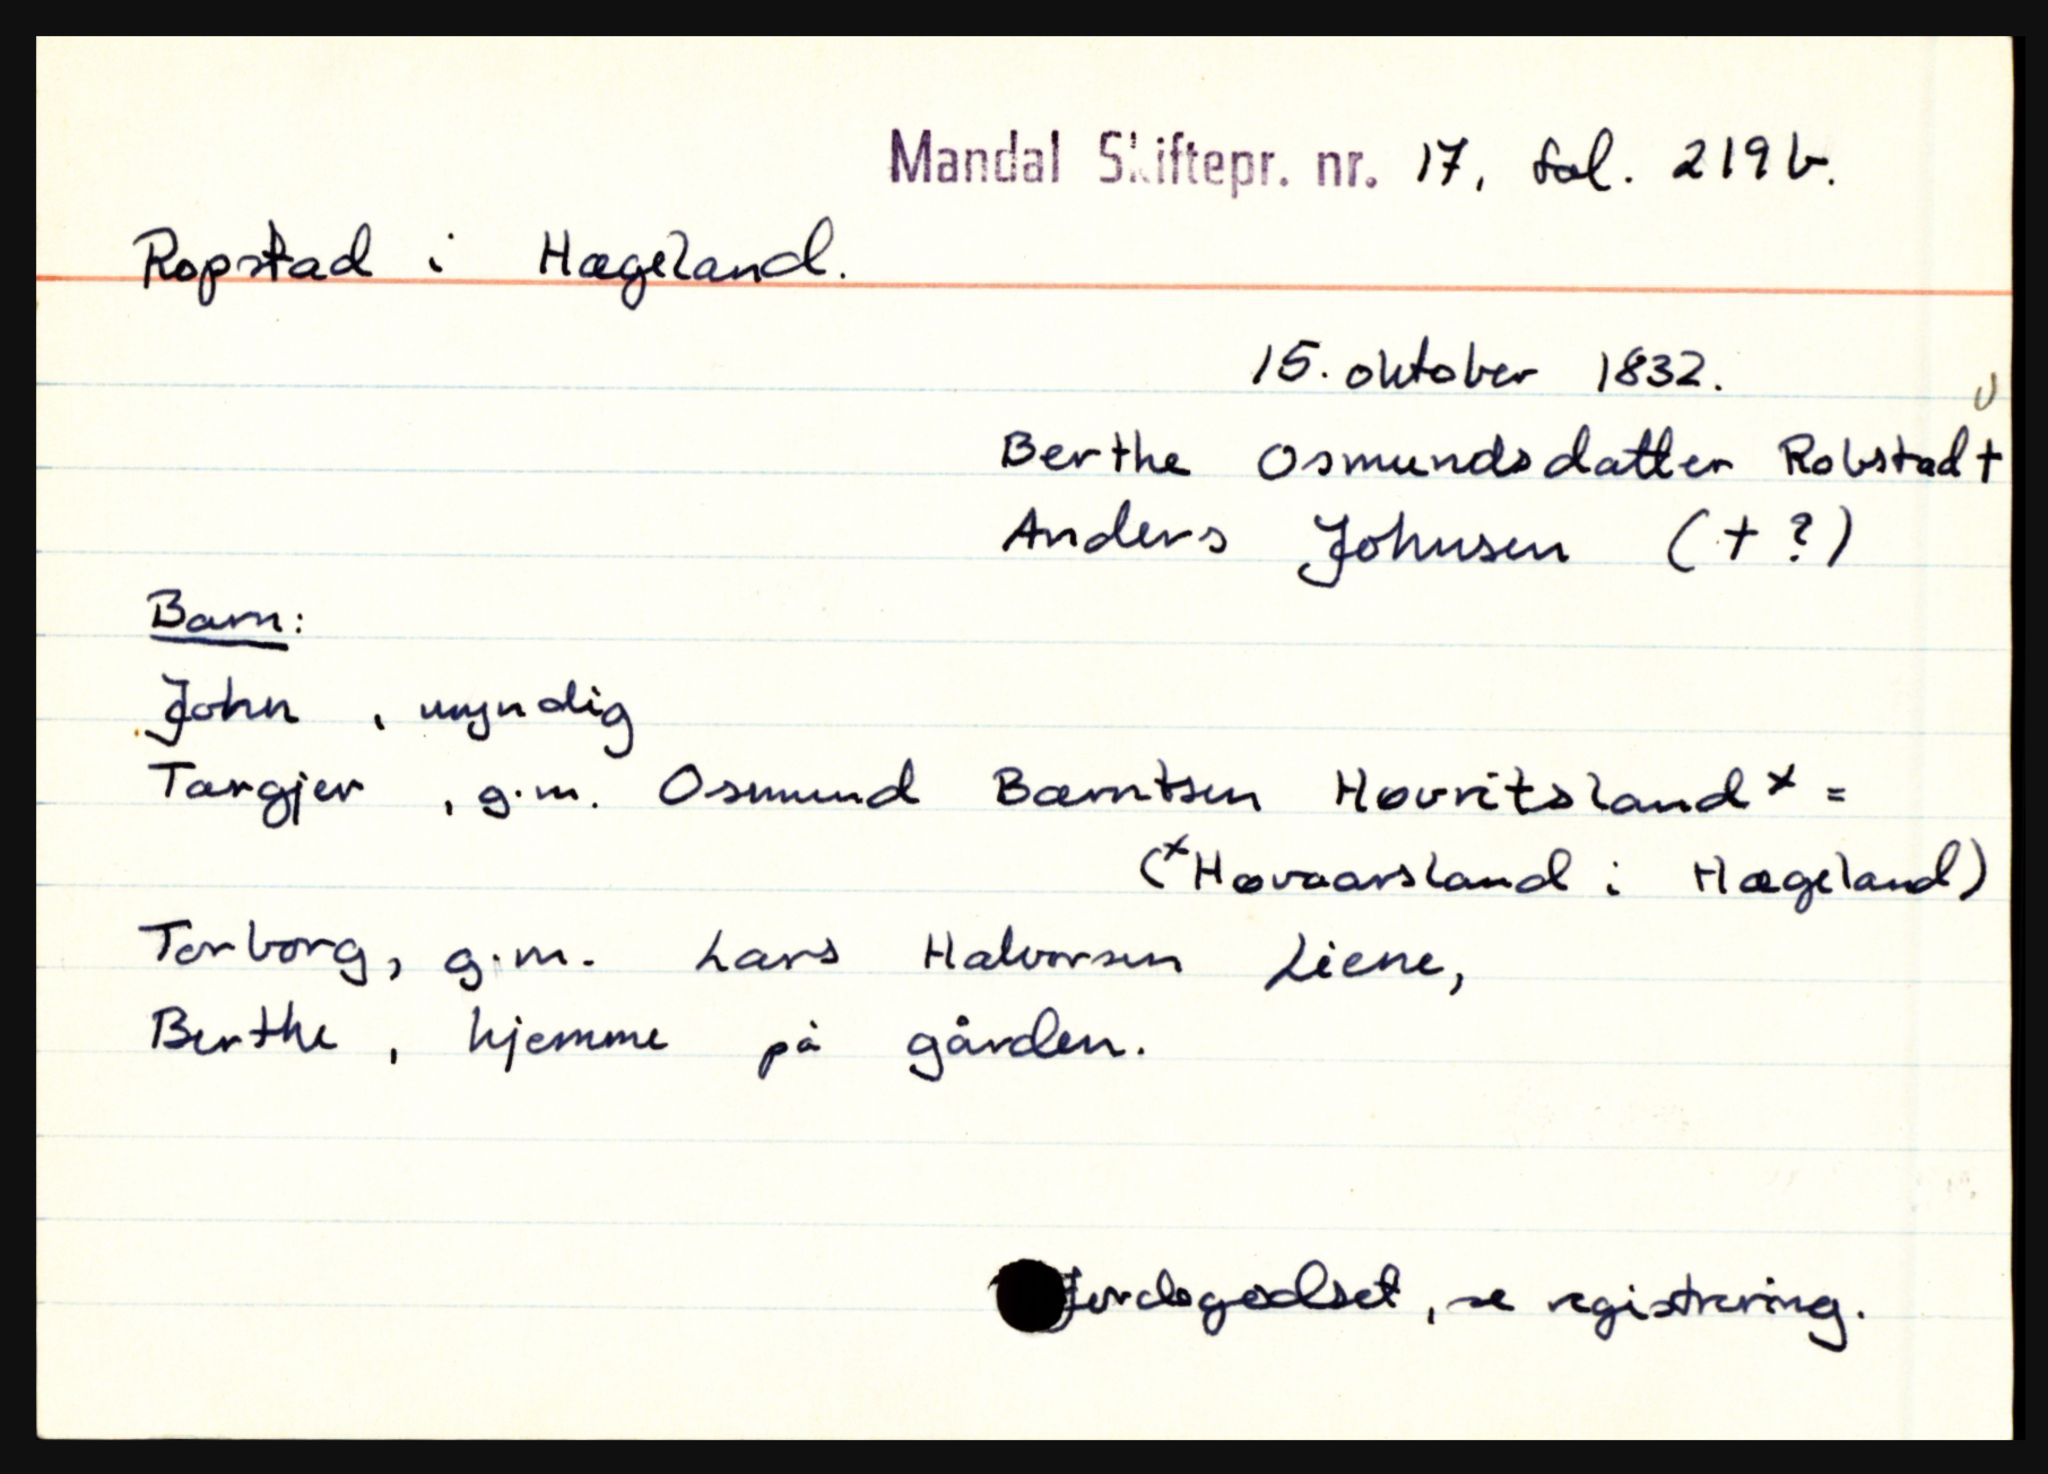 Mandal Skiftepr. nr. 17, fol. 219 b.
Ropstad i Hægeland.
15. oktober 1832.
Berthe Osmundsdatter Robstad +
Anders Johnsen (+ ?)
Barn:
John, umyndig
Targjer, g.m. Osmund Bærntsen Høvritsland x =
(x Høvaarsland i Hægeland)
Torborg, g.m. Lars Halvorsen Liene,
Berthe, hjemme på gården.
Jordegodset, se registrering.